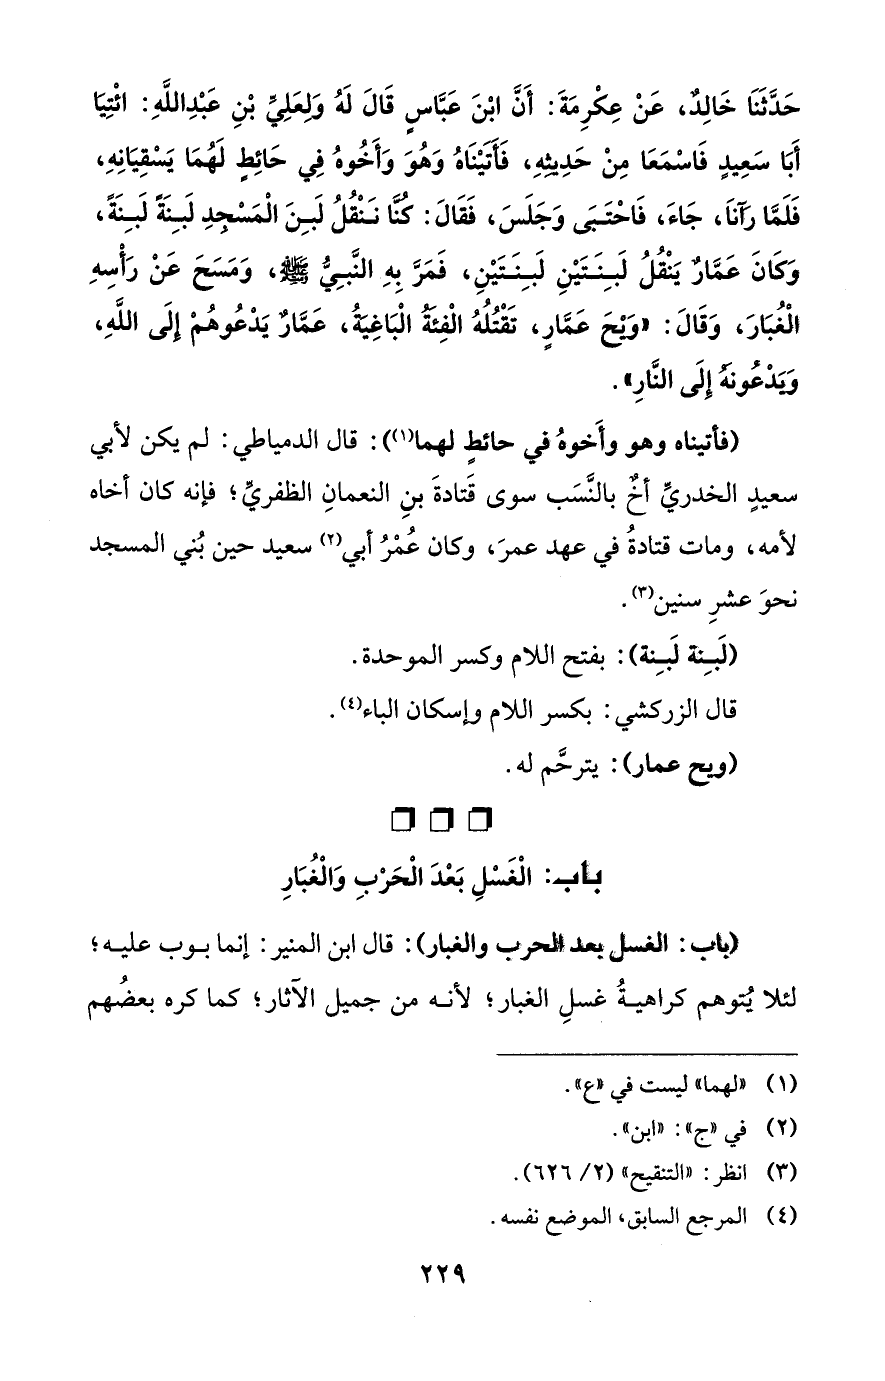 حَدَّثَنَا خَالِدٌ، عَنْ عِكْرِمَةَ: أَنَّ ابْنَ عَبَّاسٍ قَالَ لَهُ وَلِعَلِيِّ بْنِ عَبْدِاللَّهِ: ائْتِيَا
أَبَا سَعِيدٍ فَاسْمَعَا مِنْ حَدِيثِهِ، فَأَتَيْنَاهُ وَهُوَ وَأَخُوهُ فِي حَائِطٍ لَهُمَا يَسْقِيَانِهِ،
فَلَمَّا رَآنَا، جَاءَ، فَاحْتَبَى وَجَلَسَ، فَقَالَ: كُنَّا نَنْقُلُ لَبِنَ الْمَسْجِدِ لَبِنَةً لَبِنَةً،
وَكَانَ عَمَّارٌ يَنْقُلُ لَبِنَتَيْنِ لَبِنَتَيْنِ، فَمَرَّ بِهِ النَّبِيُّ ﷺ، وَمَسَحَ عَنْ رَأْسِهِ
الْغُبَارَ، وَقَالَ: «وَيْحَ عَمَّارٍ، تَقْتُلُهُ الْفِئَةُ الْبَاغِيَةُ، عَمَّارٌ يَدْعُوهُمْ إِلَى اللَّهِ،
وَيَدْعُونَهُ إِلَى النَّارِ».
(فأتيناه وهو وأَخوهُ في حائطٍ لهما(١)): قال الدمياطي: لم يكن لأبي
سعيدٍ الخدريِّ أخٌ بالنَّسَب سوى قَتادةَ بنِ النعمانِ الظفريِّ؛ فإنه كان أخاه
لأمه، ومات قتادةُ في عهد عمرَ، وكان عُمْرُ أبي(٢) سعيد حين بُني المسجد
نحوَ عشرِ سنين(٣).
(لَبِنة لَبِنة): بفتح اللام وكسر الموحدة.
قال الزركشي: بكسر اللام وإسكان الباء(٤).
(ويح عمار): يترحَّم له.
باب: الْغَسْلِ بَعْدَ الْحَرْبِ وَالْغُبَارِ
(باب: الغسل بعد الحرب والغبار): قال ابن المنير: إنما بوب عليه؛
لئلا يُتوهم كراهيةُ غسلِ الغبار؛ لأنه من جميل الآثار؛ كما كره بعضُهم
(١) «لهما» ليست في «ع».
(٢) في «ج»: «ابن».
(٣) انظر: «التنقيح» (٢/ ٦٢٦).
(٤) المرجع السابق، الموضع نفسه.
٢٢٩